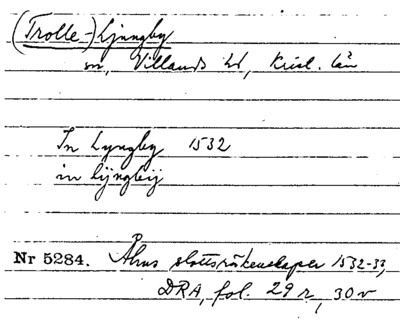 (Trolle-)Ljungby
sn, Villands hd, Krist. län
In Lyngby 1532
in lijngbij
Nr 5284. Åhus slottsräkenskaper 1532-33,
DRA, fol. 29 r, 30 v